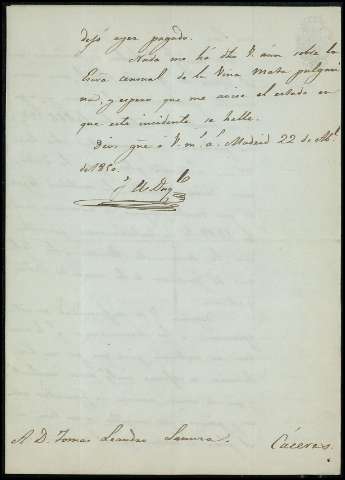 dejó ayer pagado.
Nada me há dho V. aun sobre la
Escra censual de la Viña Mata pulgui
nas, y espero que me avise el estado en
que este incidente se halle.
Dios gue á V. m.s a.s Madrid 22 de Ab.l
de 1850.
A D. Tomas Leandro
Cáceres.